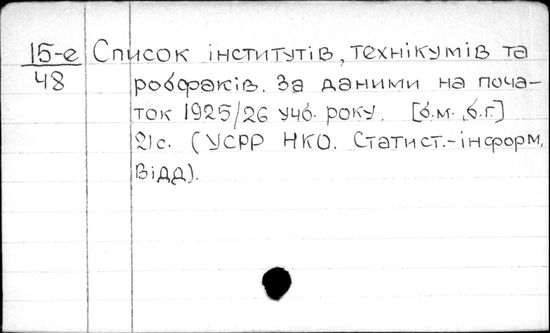 15-е Список інститутів, технікумів та
48 робфаків. За даними на поча-
ток 1925/26 учб. року. [б.м., б.г.]
21с. (УСРР НКО. Статист.-інформ.
Відд).